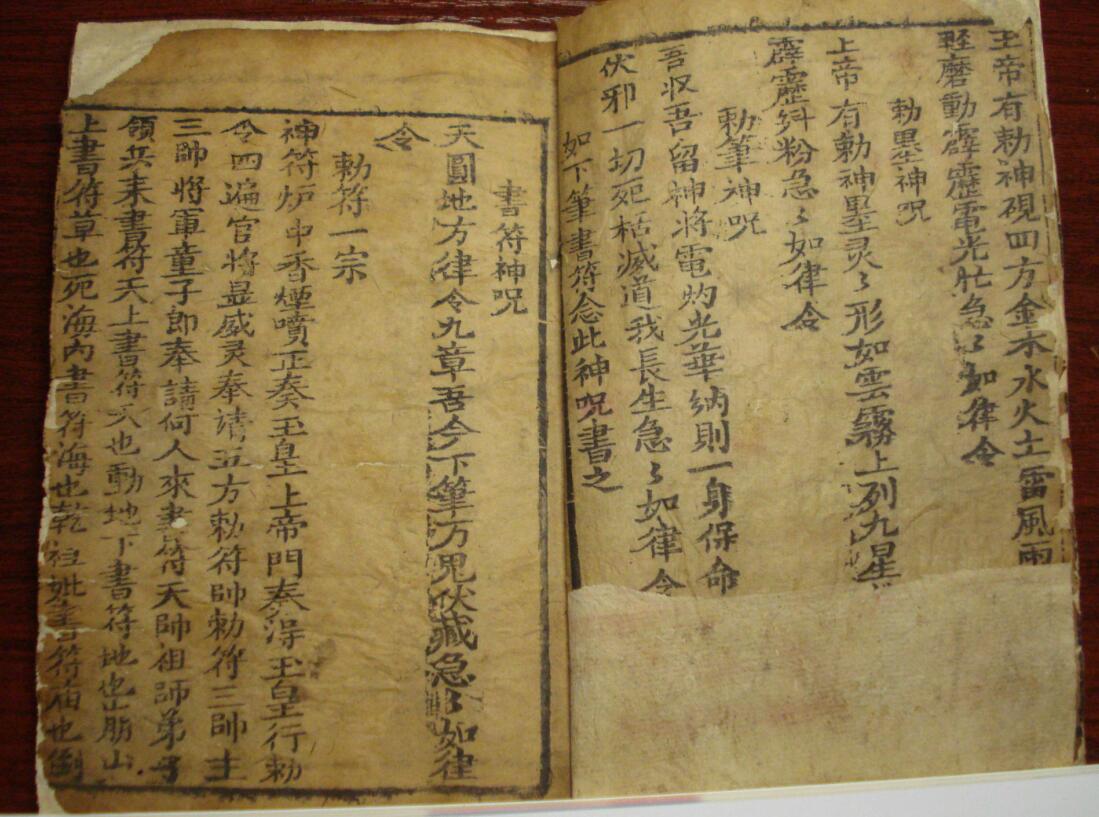 玉帝有勅神硯四方金木水火土雷風雨
輕磨動霹靂電光忙急〻如律令
勅墨神咒
上帝有勅神墨灵〻形如雲霧上列九星
霹靂糾粉急〻如律令
勅筆神咒
吾収吾留神将電灼光華纳則一身保命
伏邪一切死枯滅道我長生急〻如律令
如下筆書符念此神咒書之
書符神咒
天圓地方律令九章吾今下筆万鬼伏藏急〻如律
令
勅符一宗
神符炉中香煙噴正奏玉皇上帝門奏得玉皇行勅
令四遍官将显威灵奉请五方勅符師勅符三師主
三師将軍童子郎奉請何人來書符天師祖師弟子
領兵来書符天上書符天也動地下書符地也崩山
上書符草也死海内書符海也乾社妣書符庙也倒